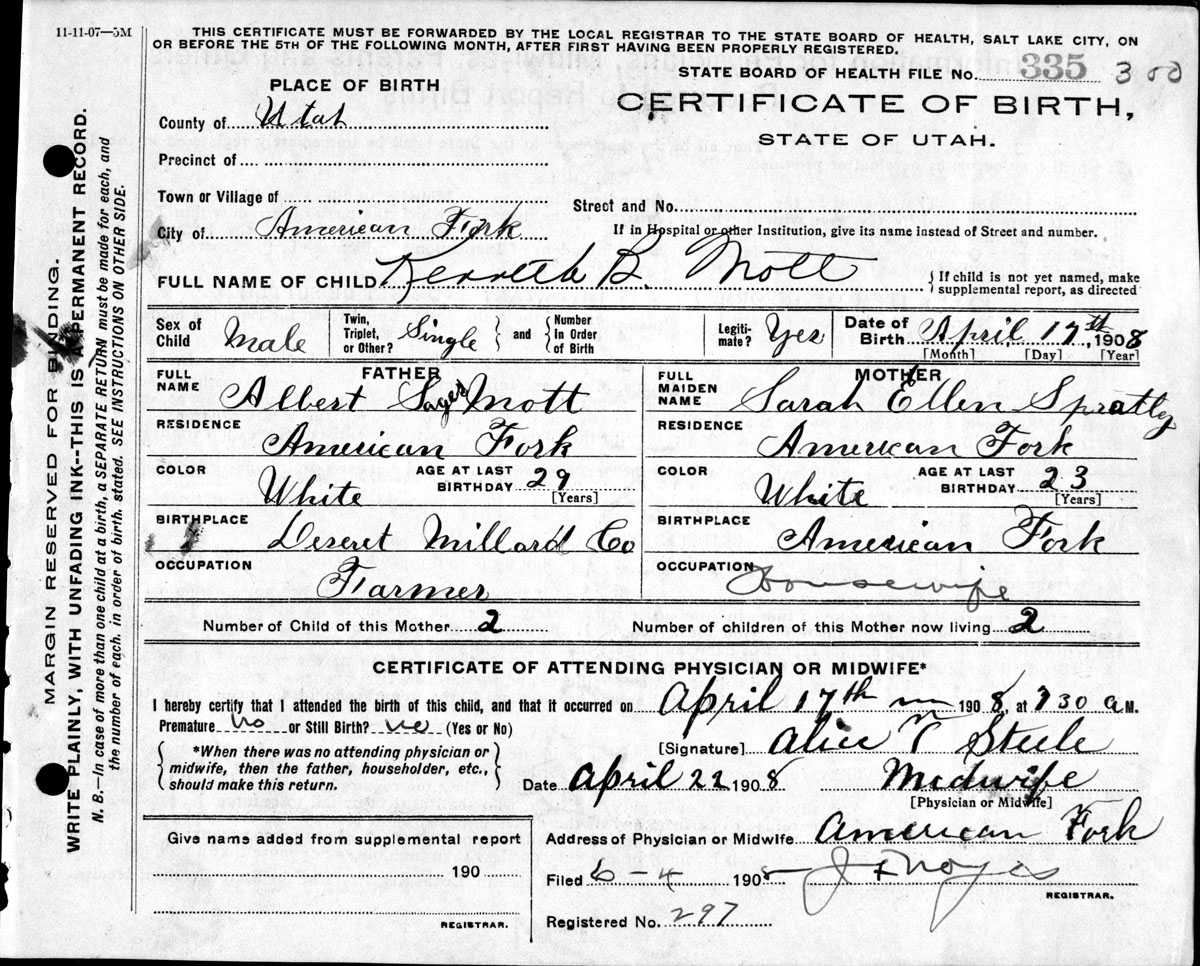 11-11-07—5M
THIS CERTIFICATE MUST BE FORWARDED BY THE LOCAL REGISTRAR TO THE STATE BOARD OF HEALTH, SALT LAKE CITY, ON
OR BEFORE THE 5TH OF THE FOLLOWING MONTH, AFTER FIRST HAVING BEEN PROPERLY REGISTERED.
STATE BOARD OF HEALTH FILE No. 335 300
PLACE OF BIRTH
CERTIFICATE OF BIRTH,
STATE OF UTAH.
County of Utah
Precinct of
Town or Village of
Street and No.
City of American Fork
If in Hospital or other Institution, give its name instead of Street and number.
FULL NAME OF CHILD Kenneth B. Mott
If child is not yet named, make
supplemental report, as directed
Sex of Child Male
Twin, Triplet, or Other? Single
and
Number In Order of Birth
Legiti-mate? Yes
Date of Birth April 17th, 1908
[Month] [Day] [Year]
FATHER
FULL NAME Albert Sager Mott
RESIDENCE American Fork
COLOR White
AGE AT LAST BIRTHDAY 29 [Years]
BIRTHPLACE Deseret Millard Co
OCCUPATION Farmer
MOTHER
FULL MAIDEN NAME Sarah Ellen Spratley
RESIDENCE American Fork
COLOR White
AGE AT LAST BIRTHDAY 23 [Years]
BIRTHPLACE American Fork
OCCUPATION Housewife
Number of Child of this Mother 2
Number of children of this Mother now living 2
CERTIFICATE OF ATTENDING PHYSICIAN OR MIDWIFE*
I hereby certify that I attended the birth of this child, and that it occurred on April 17th 1908, at 730 a M.
Premature No or Still Birth? no (Yes or No)
*When there was no attending physician or
midwife, then the father, householder, etc.,
should make this return.
[Signature] Alice T Steele
Date April 22 1908 Midwife
[Physician or Midwife]
Give name added from supplemental report
190
REGISTRAR.
Address of Physician or Midwife American Fork
Filed 6-4 1908 J F Noyes
REGISTRAR.
Registered No. 297
MARGIN RESERVED FOR BINDING.
WRITE PLAINLY, WITH UNFADING INK--THIS IS A PERMANENT RECORD.
N. B.—In case of more than one child at a birth, a SEPARATE RETURN must be made for each, and
the number of each, in order of birth, stated. SEE INSTRUCTIONS ON OTHER SIDE.